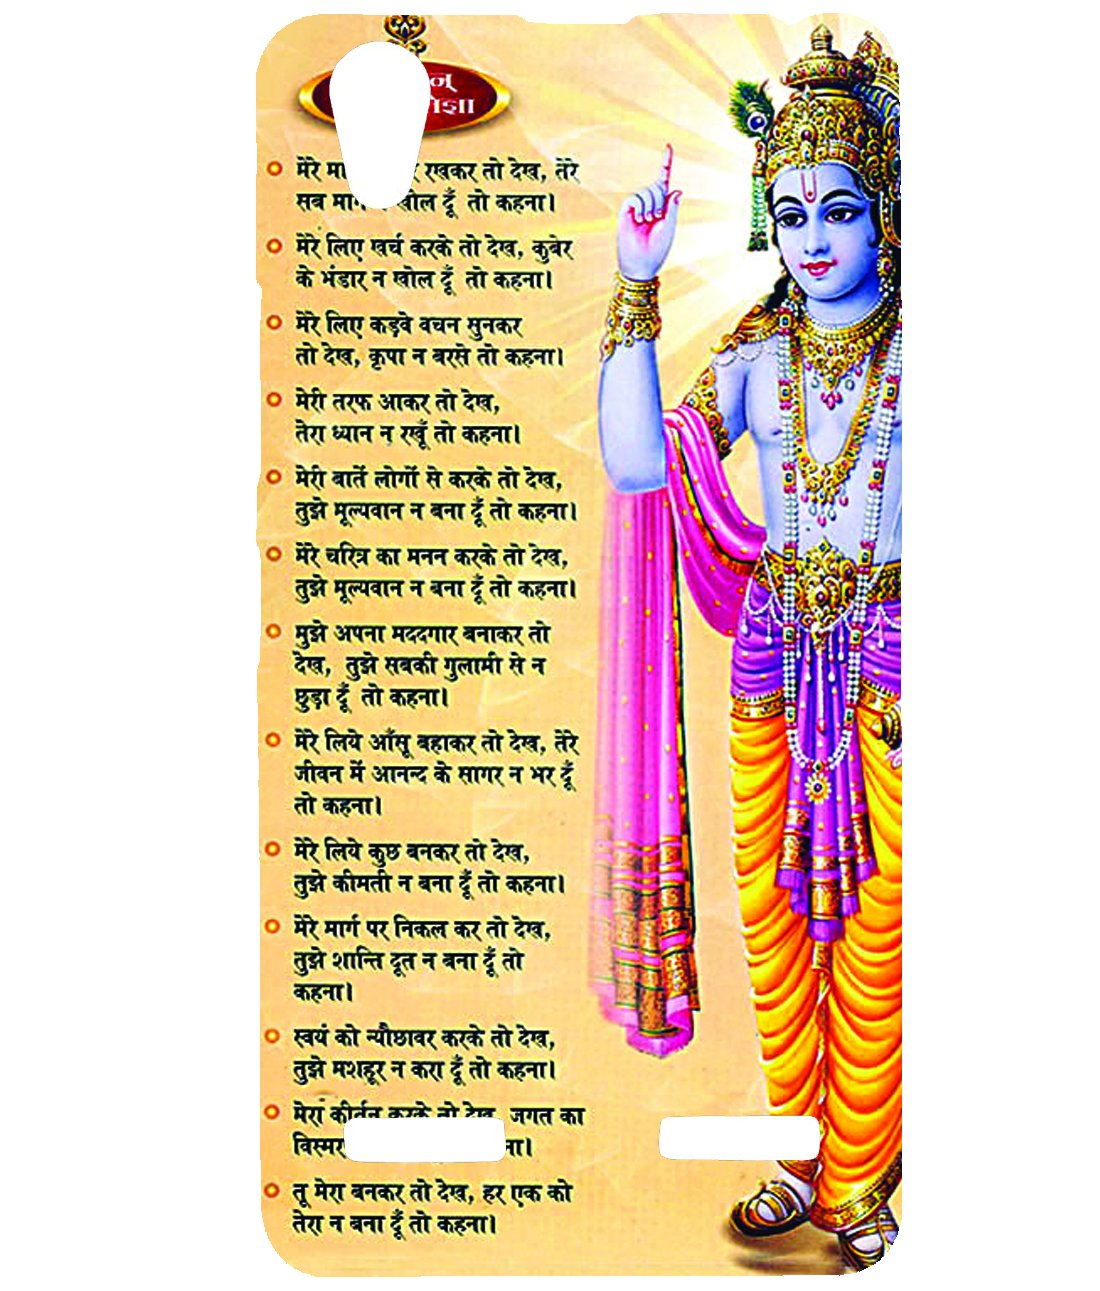 मेरे रखकर तो देख, तेरे
सब खोल दूँ तो कहना।
मेरे लिए खर्च करके तो देख, कुबेर
के भंडार न खोल दूँ तो कहना।
मेरे लिए कड़वे वचन सुनकर
तो देख, कृपा न बरसे तो कहना।
मेरी तरफ आकर तो देख,
तेरा ध्यान न रखूँ तो कहना।
मेरी बातें लोगों से करके तो देख,
तुझे मूल्यवान न बना दूँ तो कहना।
मेरे चरित्र का मनन करके तो देख,
तुझे मूल्यवान न बना दूँ तो कहना।
मुझे अपना मददगार बनाकर तो
देख, तुझे सबकी गुलामी से न
छुड़ा दूँ तो कहना।
मेरे लिये आँसू बहाकर तो देख, तेरे
जीवन में आनन्द के सागर न भर दूँ
तो कहना।
मेरे लिये कुछ बनकर तो देख,
तुझे कीमती न बना दूँ तो कहना।
मेरे मार्ग पर निकल कर तो देख,
तुझे शान्ति दूत न बना दूँ तो
कहना।
स्वयं को न्यौछावर करके तो देख,
तुझे मशहूर न करा दूँ तो कहना।
मेरा कीर्तन करके तो देख, जगत का
तू मेरा बनकर तो देख, हर एक को
तेरा न बना दूँ तो कहना।